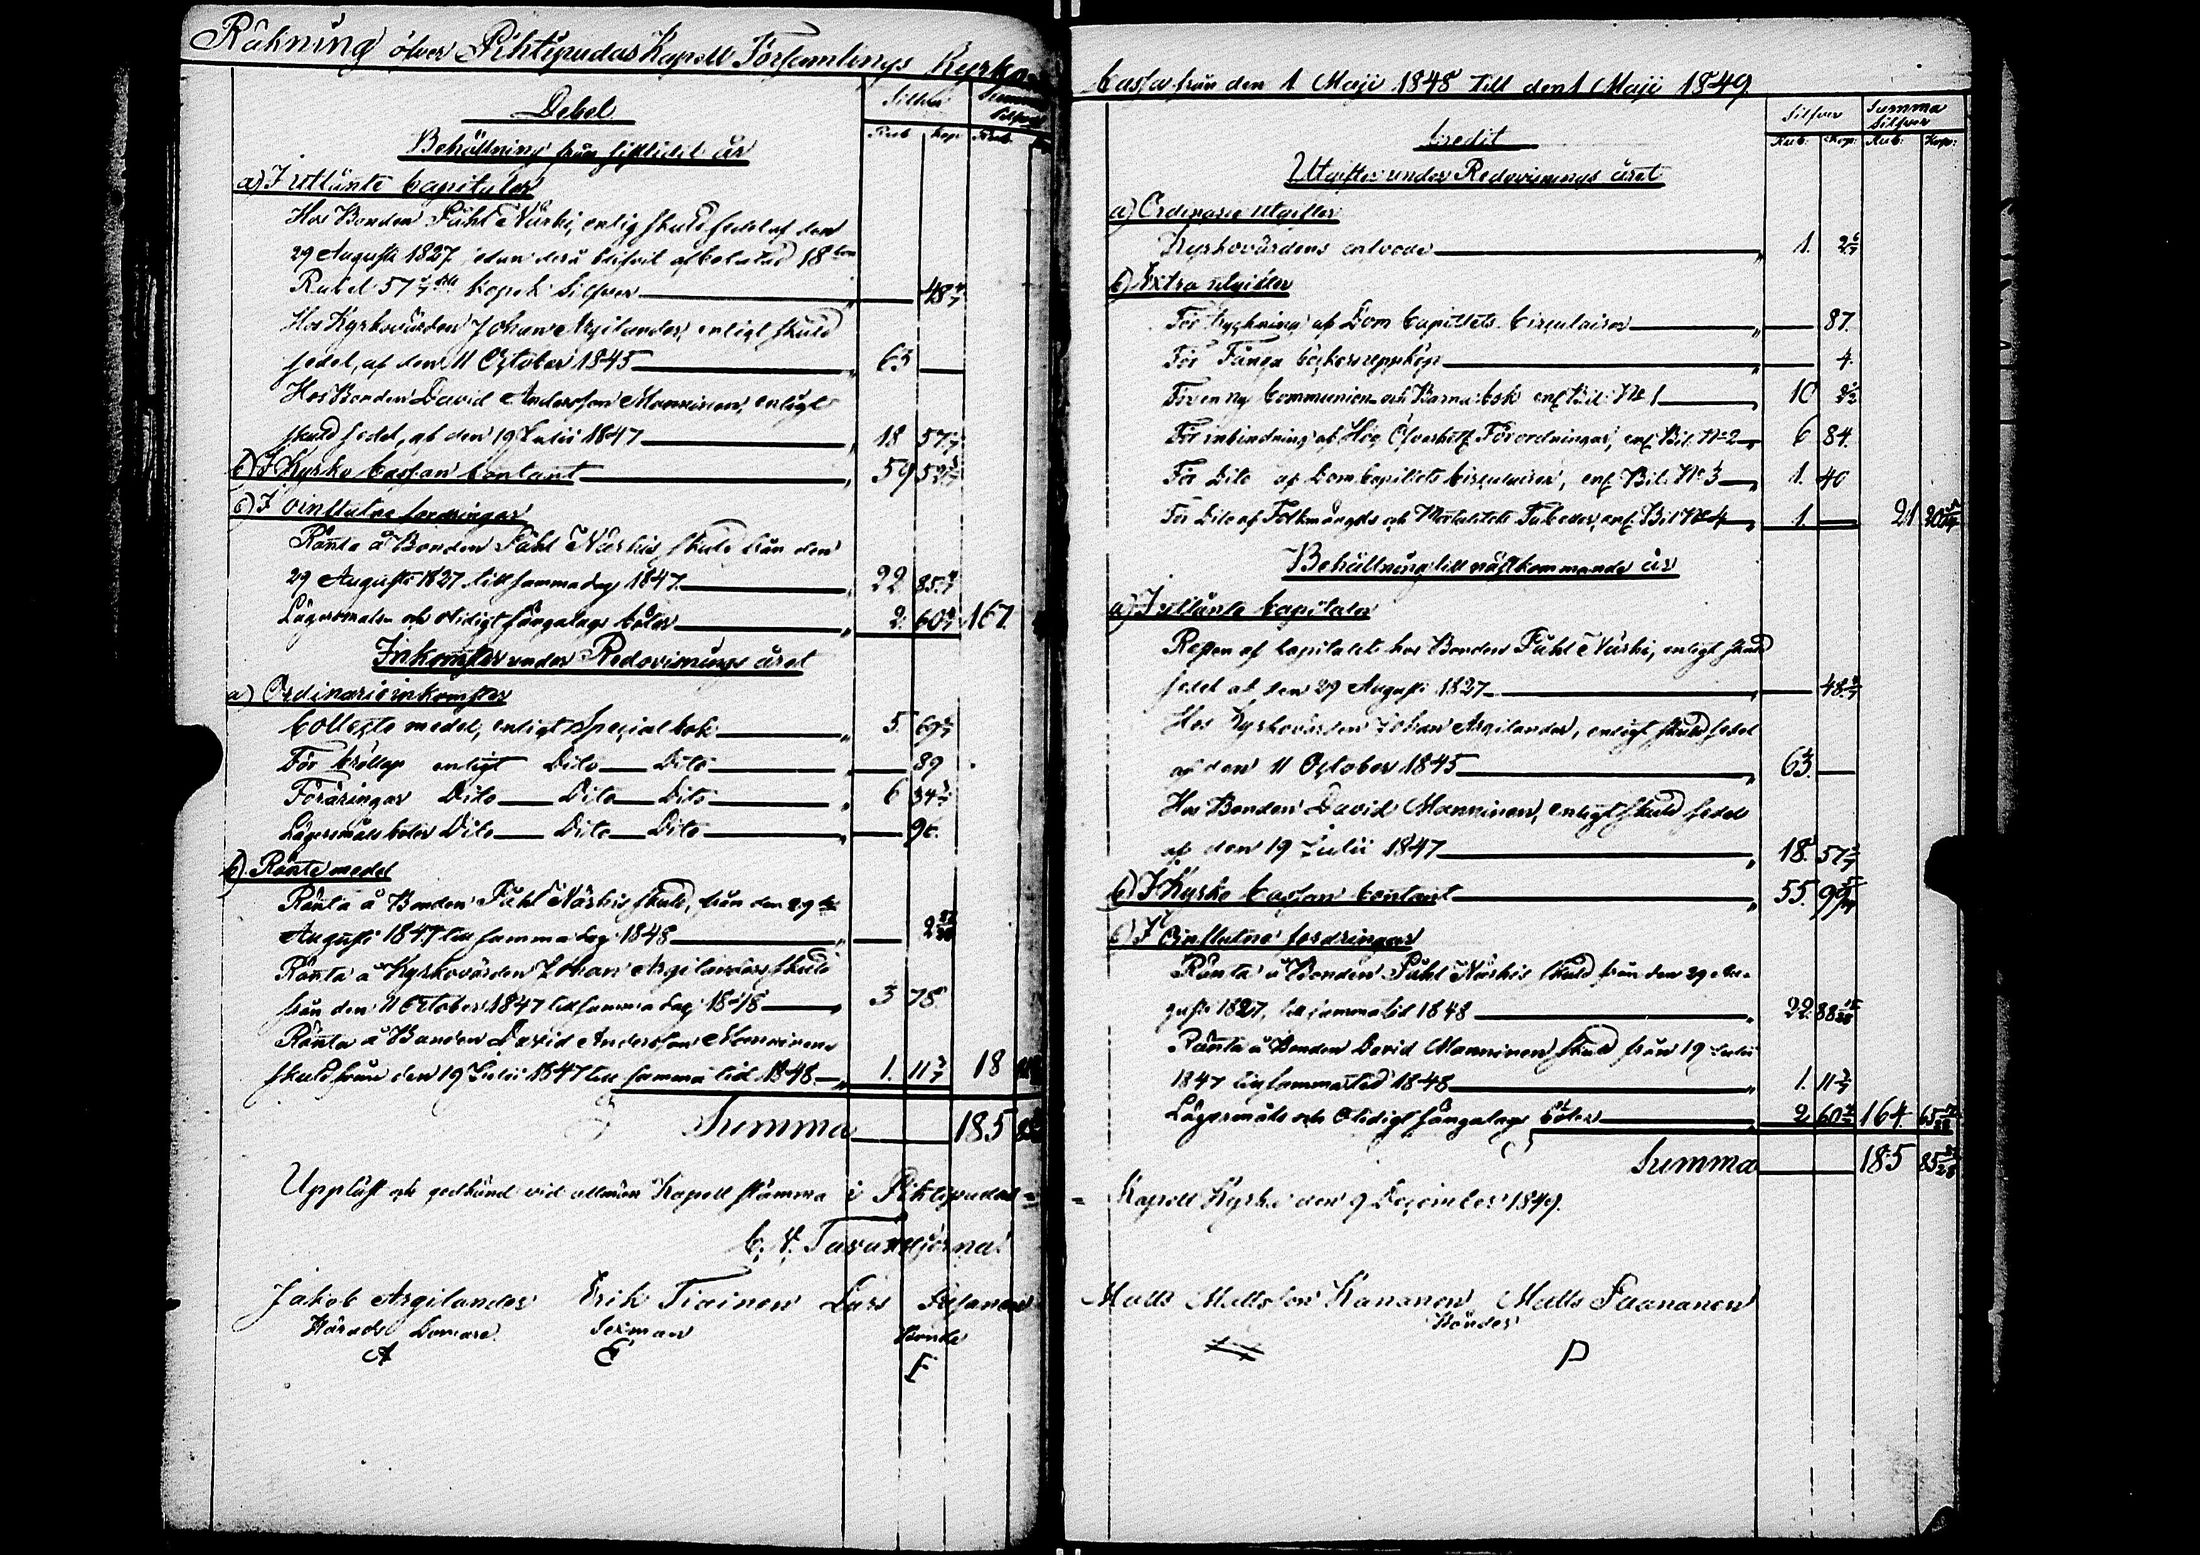 Räkning öfver Pihtipudas Kapell Församlings Kyrko
Debet
Silfver
Summa Silfver
Rub Kop Rub
Behållning från sistledit år
a) I utlånte Capitaler
Hos Bonden Påhl Närhi, enlig skuld sedel af den
29 Augusti 1827, sedan derå blifvit afbetalad 18
Rubel 57 1/7 kopek Silfver 48 4/7
Hos Kyrkovärden Johan Argilander, enligt skuld
sedel, af den 11 October 1845 63
Hos Bonden David Andersson Manninen, enligt
skuld sedel, af den 19 Julii 1847 18 57 1/7
b) I Kyrko Cassan Contant 59 52
c) I oinflutne fordringar
Ränta å Bonden Påhl Närhis skuld från den
29 Augusti 1827 till samma dag 1847. 22 85
Lägersmåls och otidigt sängalags böter 2. 60 167
Inkomster under Redovisnings året
a) Ordinarie inkomster
Collecte medel, enligt Special bok 5. 69
För bröllop enligt Dito Dito 89
Föräringar Dito Dito Dito 6 34
Lägersmåls böter Dito Dito Dito 96.
b) Ränte medel
Ränta å Bonden Påhl Närhis skuld, från den 29
Augusti 1847 till samma dag 1848 2
Ränta å Kyrkovärden Johan Argilanders skuld
från den 11 October 1847 till samma dag 1848 3 78.
Ränta å Bonden David Andersson Manninens
skuld från den 19 Julii 1847 till samma tid 1848 1. 11 3/7 18
Summa 185
Uppläst och godkänd vid allmän Kapell stämma i Pihtipudas
C. V. Tavaststjerna.
Jakob Argilander Erik Tiainen Lars
Härads Domare. Sexman Bonde
A E F
Cassa från den 1 Maji 1848 till den 1 Maji 1849
Silfver
Summa Silfver
Rub: Kop: Rub: Kop:
Credit
Utgifter under Redovisnings året
a) Ordinarie utgifter
Kyrkovärdens arlvode 1. 2 6/7
b) Extra utgifter
För tryckning af Dom Capitlets Circulairer 87.
För Fånga 4.
För en ny Communion och Barna bok enl Bil: No 1 10
För inbindning af Hög Öfverhetl Förordningar, enl. Bil. No 2 6 84.
För Dito af Dom Capitlets Circulairer, enl. Bil. No 3 1. 40
För Dito af Folkmängds och Mortalitets Tabeller, enl. Bil No 4 1. 21 20
Behållning till nästkommande år
a) I utlånte Capitaler
Resten af Capitalet hos Bonden Påhl Närhi, enligt skuld
sedel af den 29 Augusti 1827 48. 4/7
Hos Kyrkovärden Johan Argilander, enligt skuld sedel
af den 11 October 1845 63.
Hos Bonden David Manninen, enligt skuld sedel
af den 19 Julii 1847 18. 57 1/7
b) I Kyrko Cassan Contant 55. 99
c) I Oinflutne fordringar
Ränta å Bonden Påhl Närhis skuld från den 29 Au-
gusti 1827, till samma tid 1848 22. 88
Ränta å Bonden David Manninens skuld från 19 Julii
1847 till samma tid 1848 1. 11 3/7
Lägersmåls och Otidigt sängalags böter 2 60 164. 65
Summa 185 85
Kapell Kyrka den 9 December 1849.
Matts Mattsson Kananen, Matts Paananen
Bönder
P